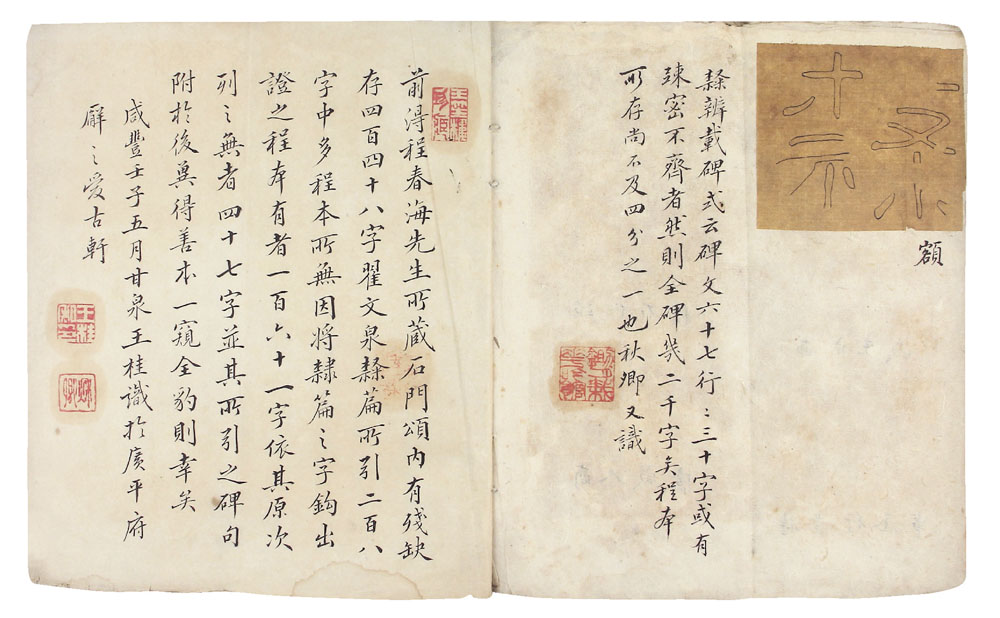 額
隸辨載碑式云碑文六十七行：三十字或有
踈密不齊者然則全碑幾二千字矣程本
所存尚不及四分之一也秋卿又識
前得程春海先生所藏石門頌內有殘缺
存四百四十八字翟文泉隸篇所引二百八
字中多程本所無因將隸篇之字鈎出
證之程本有者一百六十一字依其原次
列之無者四十七字並其所引之碑句
附於後冀得善本一窺全豹則幸矣
咸豐壬子五月甘泉王桂識於廣平府
廨之愛古軒